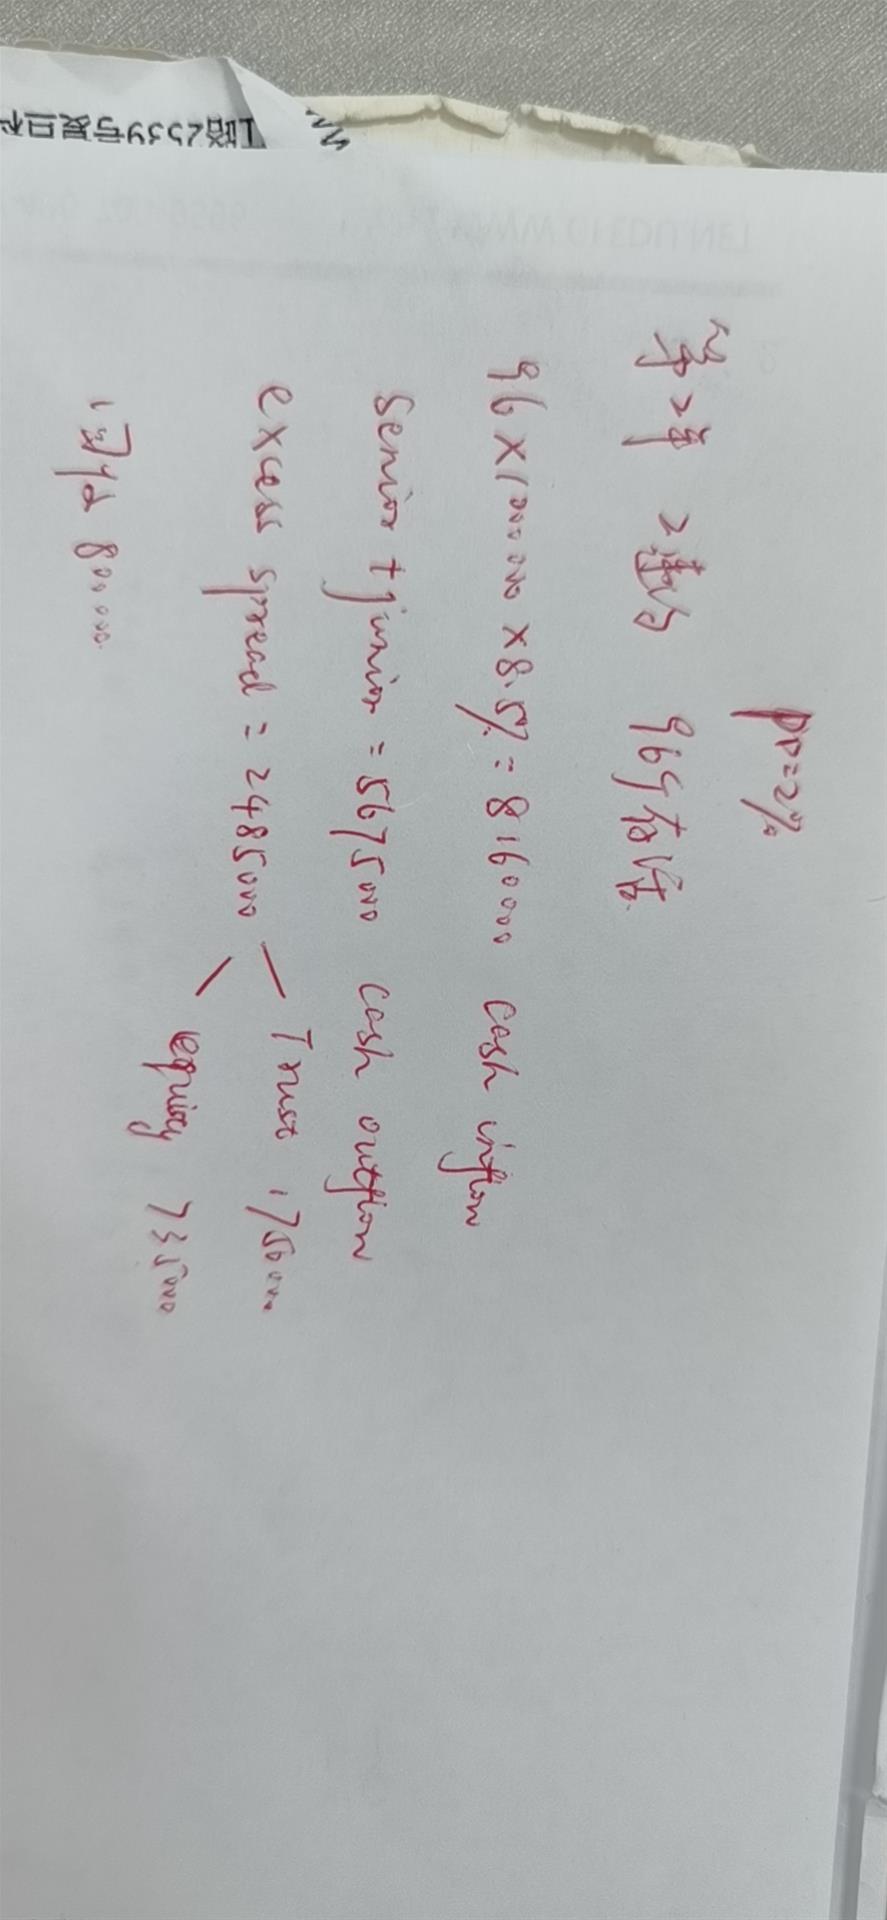 PD=2%
第2年 2违约 96存活
96×1000000×8.5%=8160000 cash inflow
senior + junior = 5675000 cash outflow
excess spread = 2485000
Trust 1750000
equity 735000
回收 800000
路2539号复旦